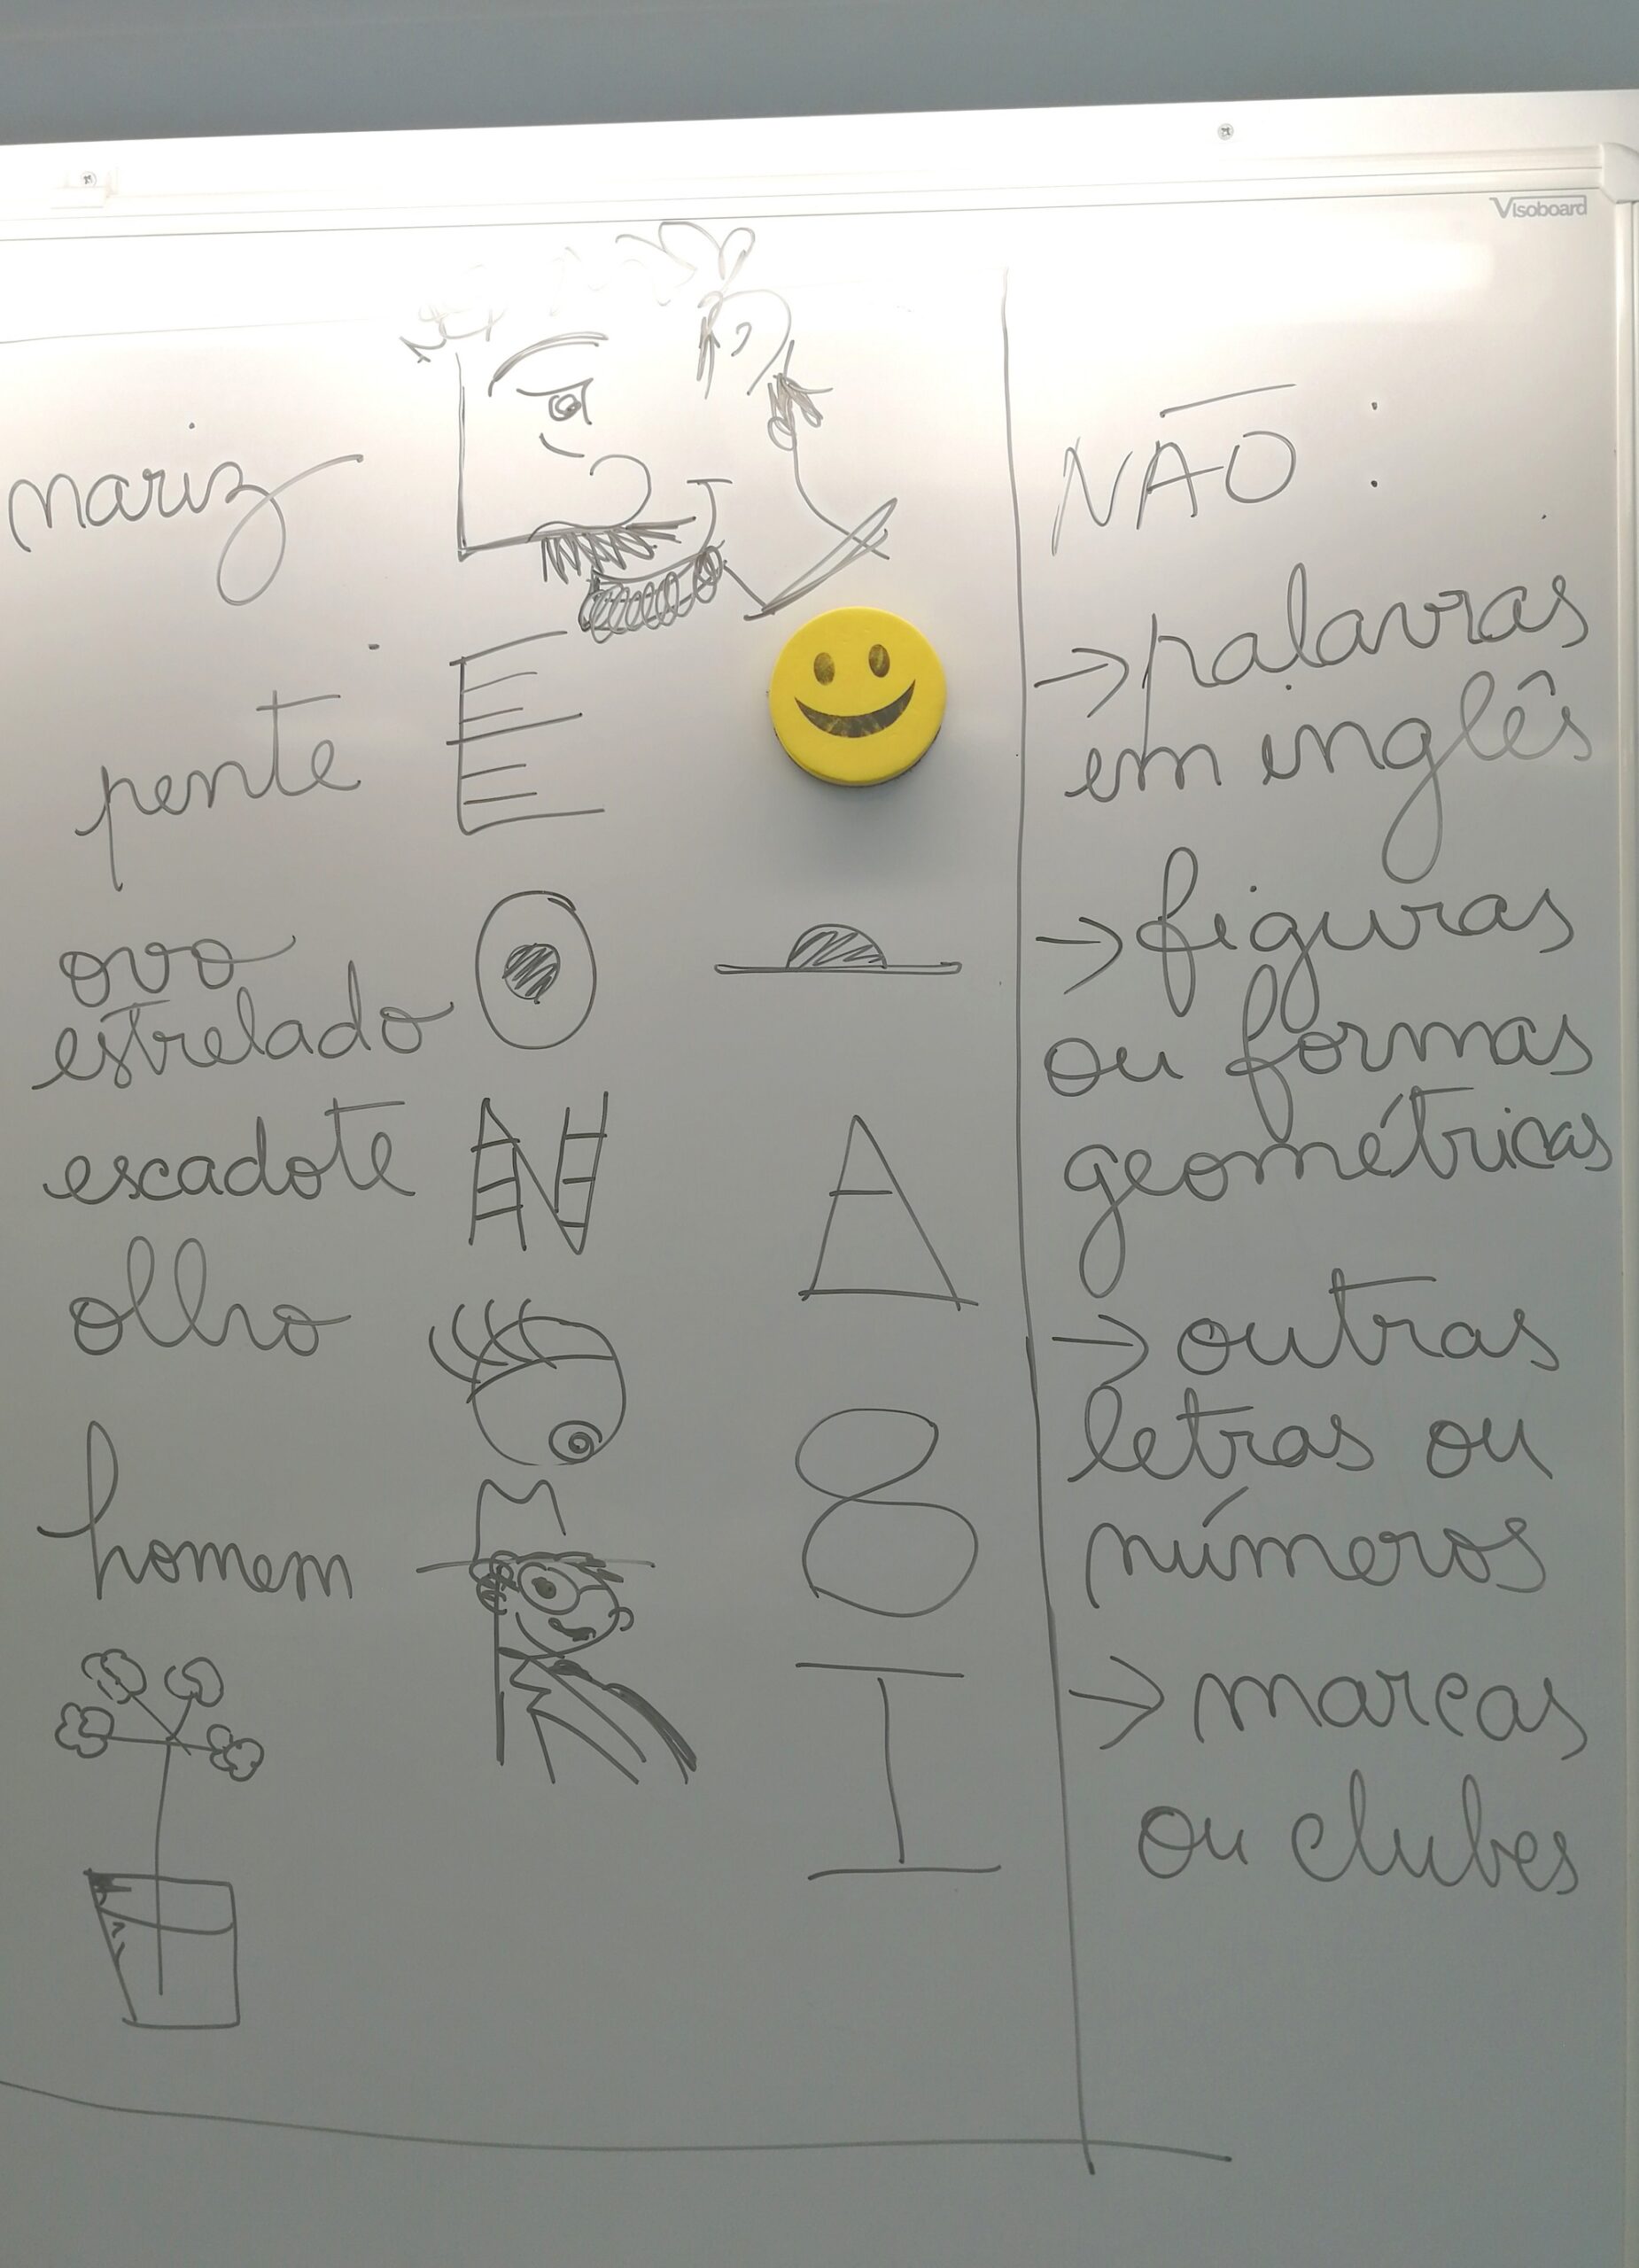 Visoboard
nariz
pente
ovo
estrelado
escadote
olho
homem
E
N
A
8
I
NÃO :
→ palavras
em inglês
→ figuras
ou formas
geométricas
→ outras
letras ou
números
→ marcas
ou clubes